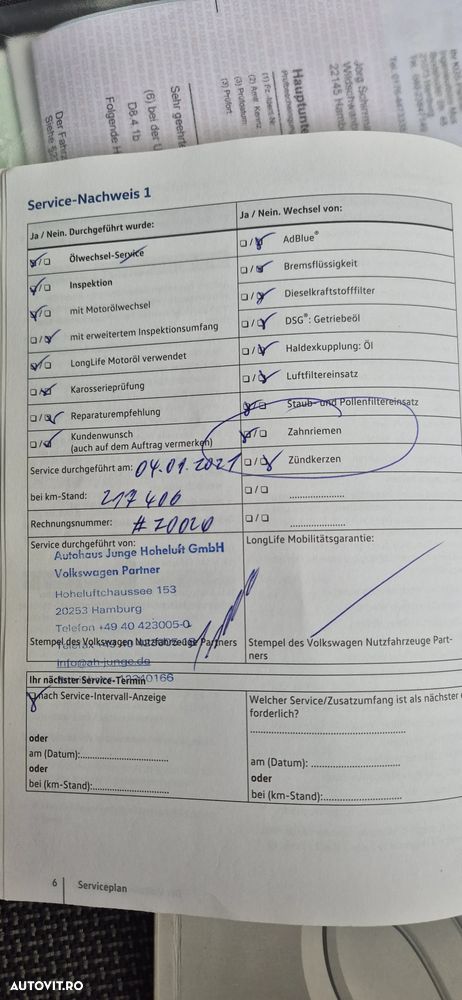 Hauptunte
Jörg Schirrm
22145 Hamb
(3) Prüfort
Sehr geehrte
(6) bei der U
D8.4 1b
Folgende H
Der Fahrz
Service-Nachweis 1
Ja / Nein. Durchgeführt wurde:
Ja / Nein. Wechsel von:
Ölwechsel-Service
AdBlue®
Inspektion
Bremsflüssigkeit
mit Motorölwechsel
Dieselkraftstofffilter
mit erweitertem Inspektionsumfang
DSG®: Getriebeöl
LongLife Motoröl verwendet
Haldexkupplung: Öl
Karosserieprüfung
Luftfiltereinsatz
Reparaturempfehlung
Staub- und Pollenfiltereinsatz
Kundenwunsch
(auch auf dem Auftrag vermerken)
Zahnriemen
Zündkerzen
Service durchgeführt am: 04.01.2021
bei km-Stand: 217 406
Rechnungsnummer: # 20020
Service durchgeführt von:
LongLife Mobilitätsgarantie:
Autohaus Junge Hoheluft GmbH
Volkswagen Partner
Hoheluftchaussee 153
20253 Hamburg
Telefon +49 40 423005-0
Stempel des Volkswagen Nutzfahrzeuge Partners
Stempel des Volkswagen Nutzfahrzeuge Part-
ners
info@ah-junge.de
Ihr nächster Service-Termin
nach Service-Intervall-Anzeige
Welcher Service/Zusatzumfang ist als nächster
forderlich?
oder
am (Datum):
oder
bei (km-Stand):
am (Datum):
oder
bei (km-Stand):
6 Serviceplan
AUTOVIT.RO